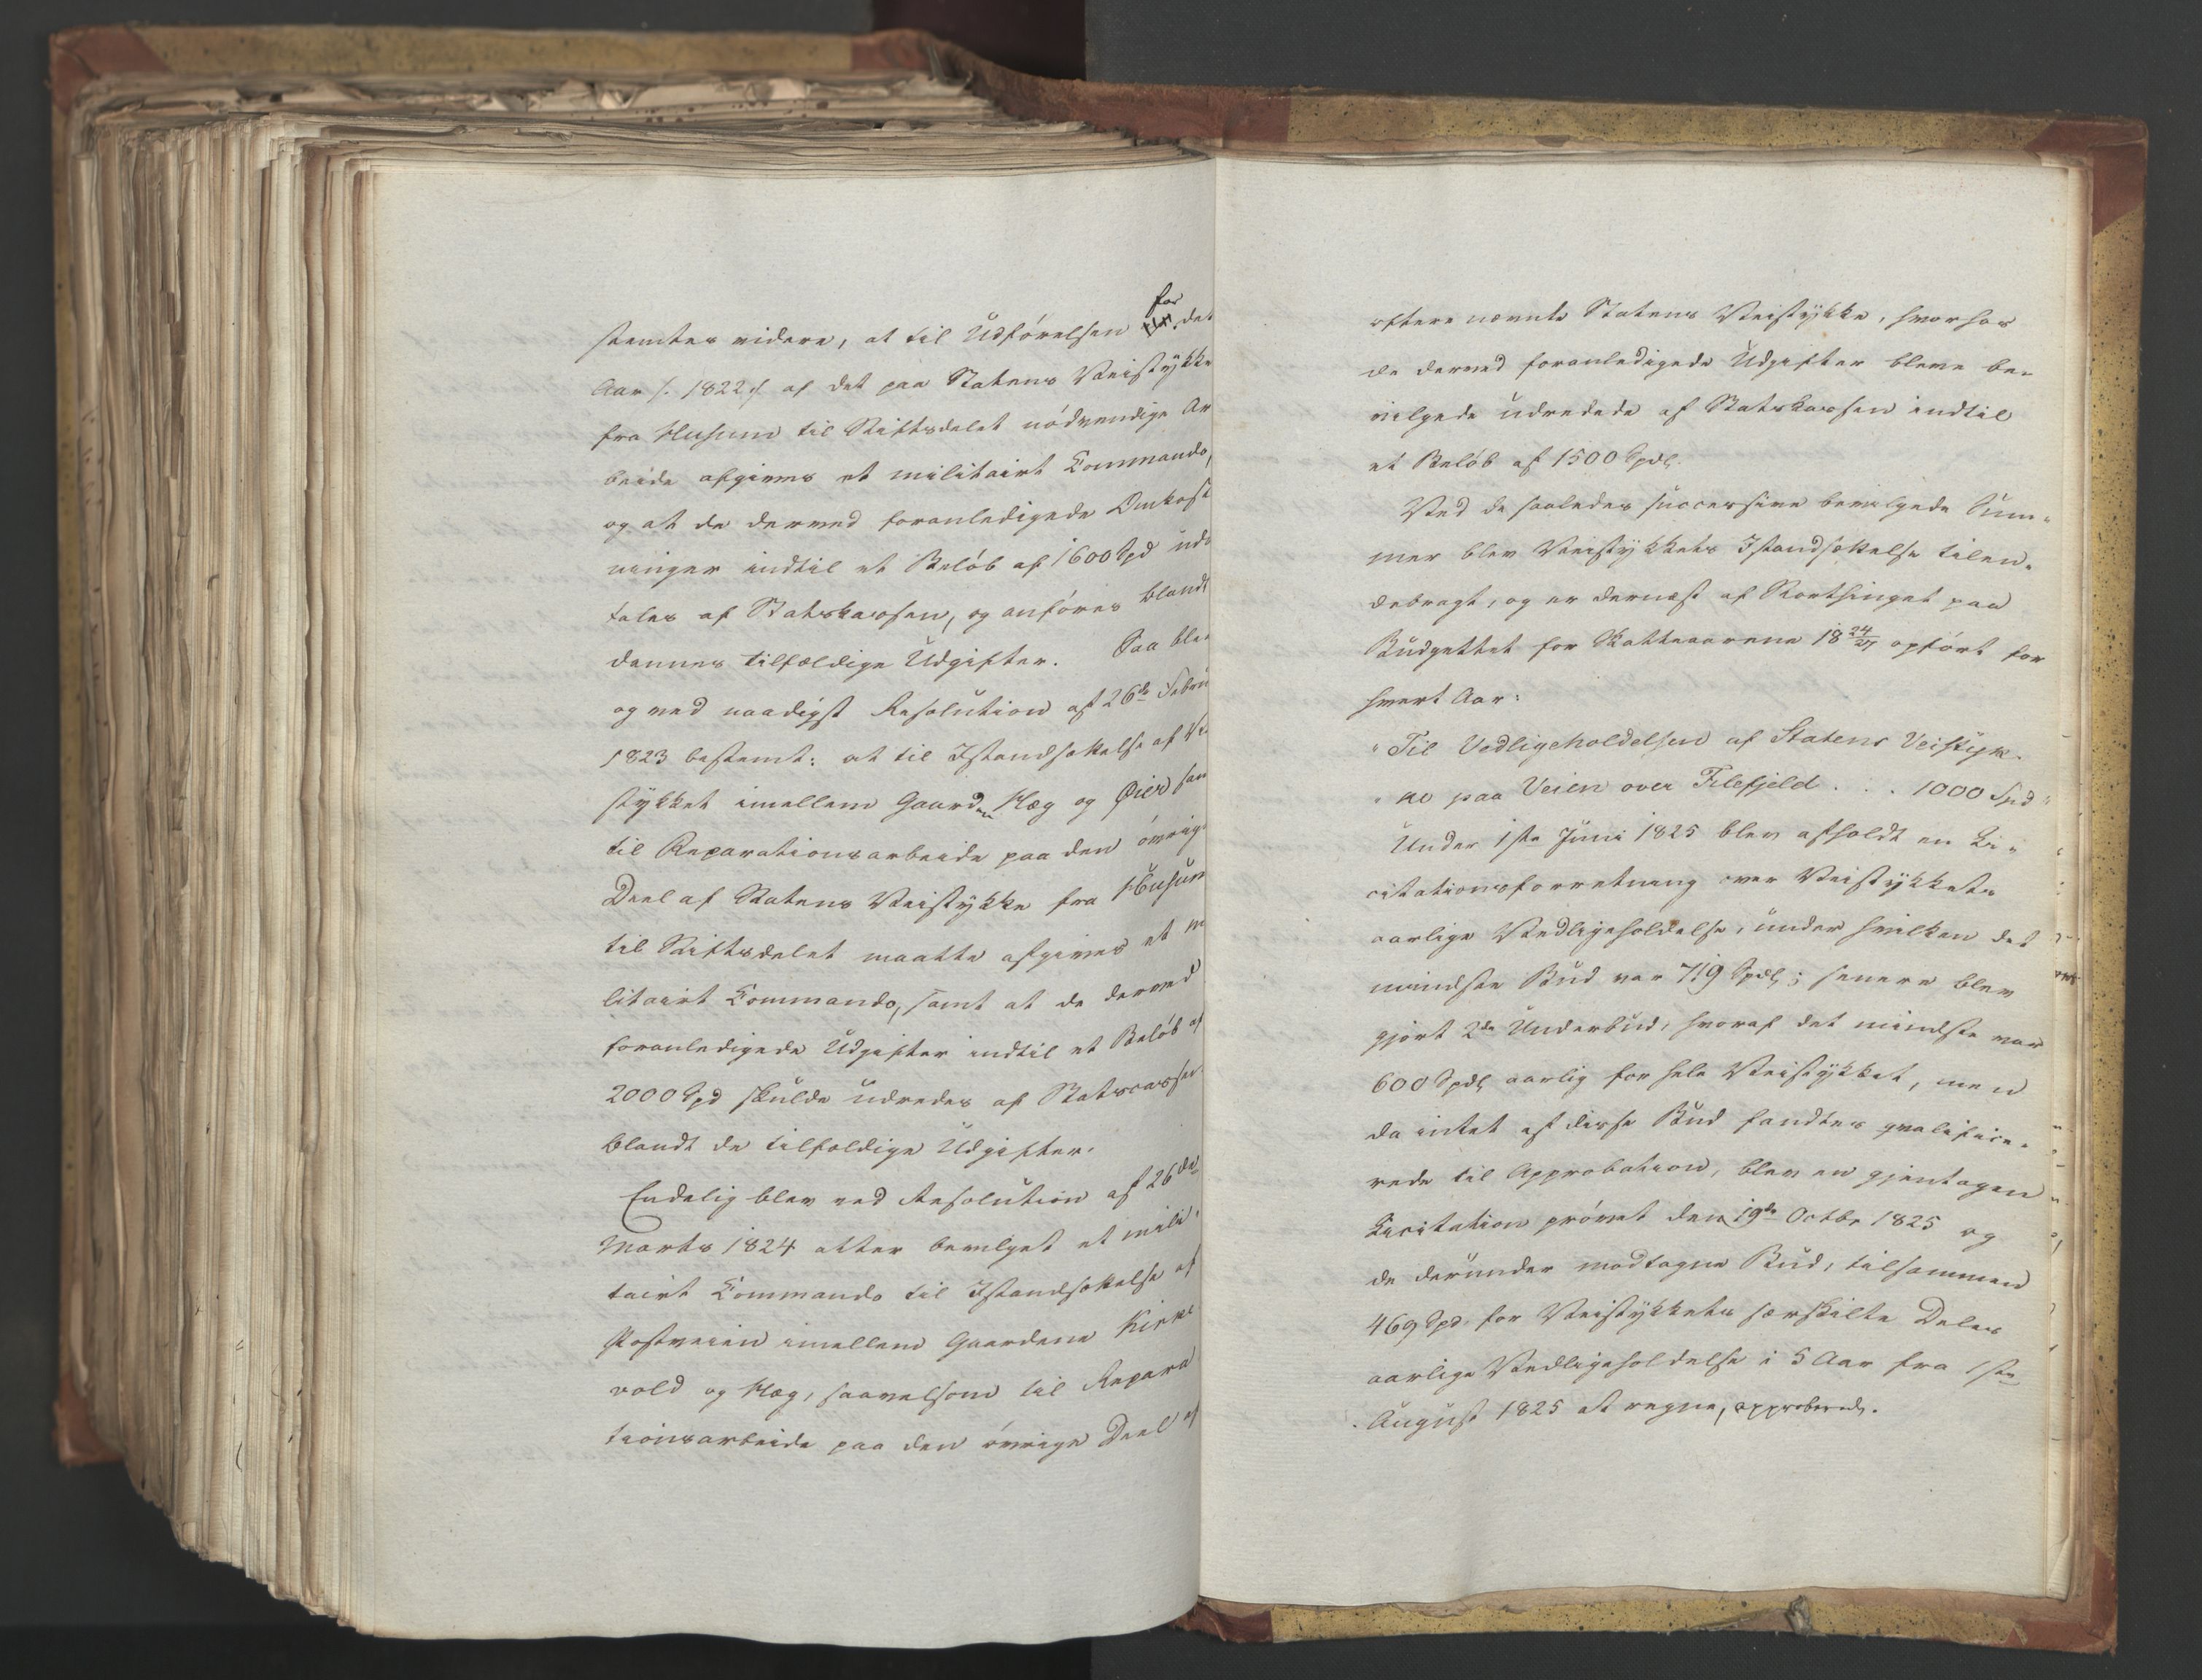 for
stemtes videre, at til Udførelsen det
Aar /: 1822 :/ af det paa Statens Veistykke
fra Husum til Stiftsdelet nödvendige Ar
beide afgives et militairt Commando,
og at de derved foranledigede Omkost
ninger indtil et Beløb af 1600 Spd ud
tales af Statskassen, og anføres blandt
dennes tilfældige Udgifter. Saa blev
og ved naadigst Resolution af 26de Febru
1823 bestemt: at til Istandsættelse af Vei
stykket imellem Gaardn Hæg og Öie sam
til Reparationsarbeide paa den övrige
Deel af Statens Veistykke fra Husum
til Stiftsdelet maatte afgives et m
litairt Commando, samt at de derved
foranledigede Udgifter indtil et Beløb af
2000 Spd skulde udredes af Statscassen
blandt de tilfældige Udgifter.
Endelig blev ved Resolution af 26de
Marts 1824 atter bevilget et mili
tairt Commando til Istandsættelse af
Postveien imellem Gaardene Kirke
vold og Hæg, saavelsom til Repara
tionsarbeide paa den övrige Deel af
oftere nævnte Statens Veistykke, hvorhos
de derved foranledigede Udgifter bleve be-
vilgede udredede af Statskassen indtil
et Beløb af 1500 Spdl.
Ved de saaledes successive bevilgede Sum-
mer blev Veistykkets Istandsættelse tilen-
debragt, og er dernæst af Storthinget paa
Budgettet for Skatteaarene 18 24/27 opført for
hvert Aar:
"Til Vedligeholdelsen af Statens Veistyk-
" ke paa Veien over Filefjeld . . . 1000 Spd "
Under 1ste Juni 1825 blev afholdt en Li-
citationsforretning over Veistykkets
aarlige Vedligeholdelse, under hvilken det
mindste Bud var 719 Spdl; senere blev
gjort 2de Underbud, hvoraf det mindste var
600 Spdl aarlig for hele Veistykket, men
da intet af disse Bud fandtes qvalifice-
rede til Approbation, blev en gjentagen
Licitation prövet den 19de Octbr 1825 og
de derunder modtagne Bud, tilsammen
469 Spd for Veistykkets særskilte Deles
aarlige Vedligeholdelse i 5 Aar fra 1ste
August 1825 at regne, approberede.